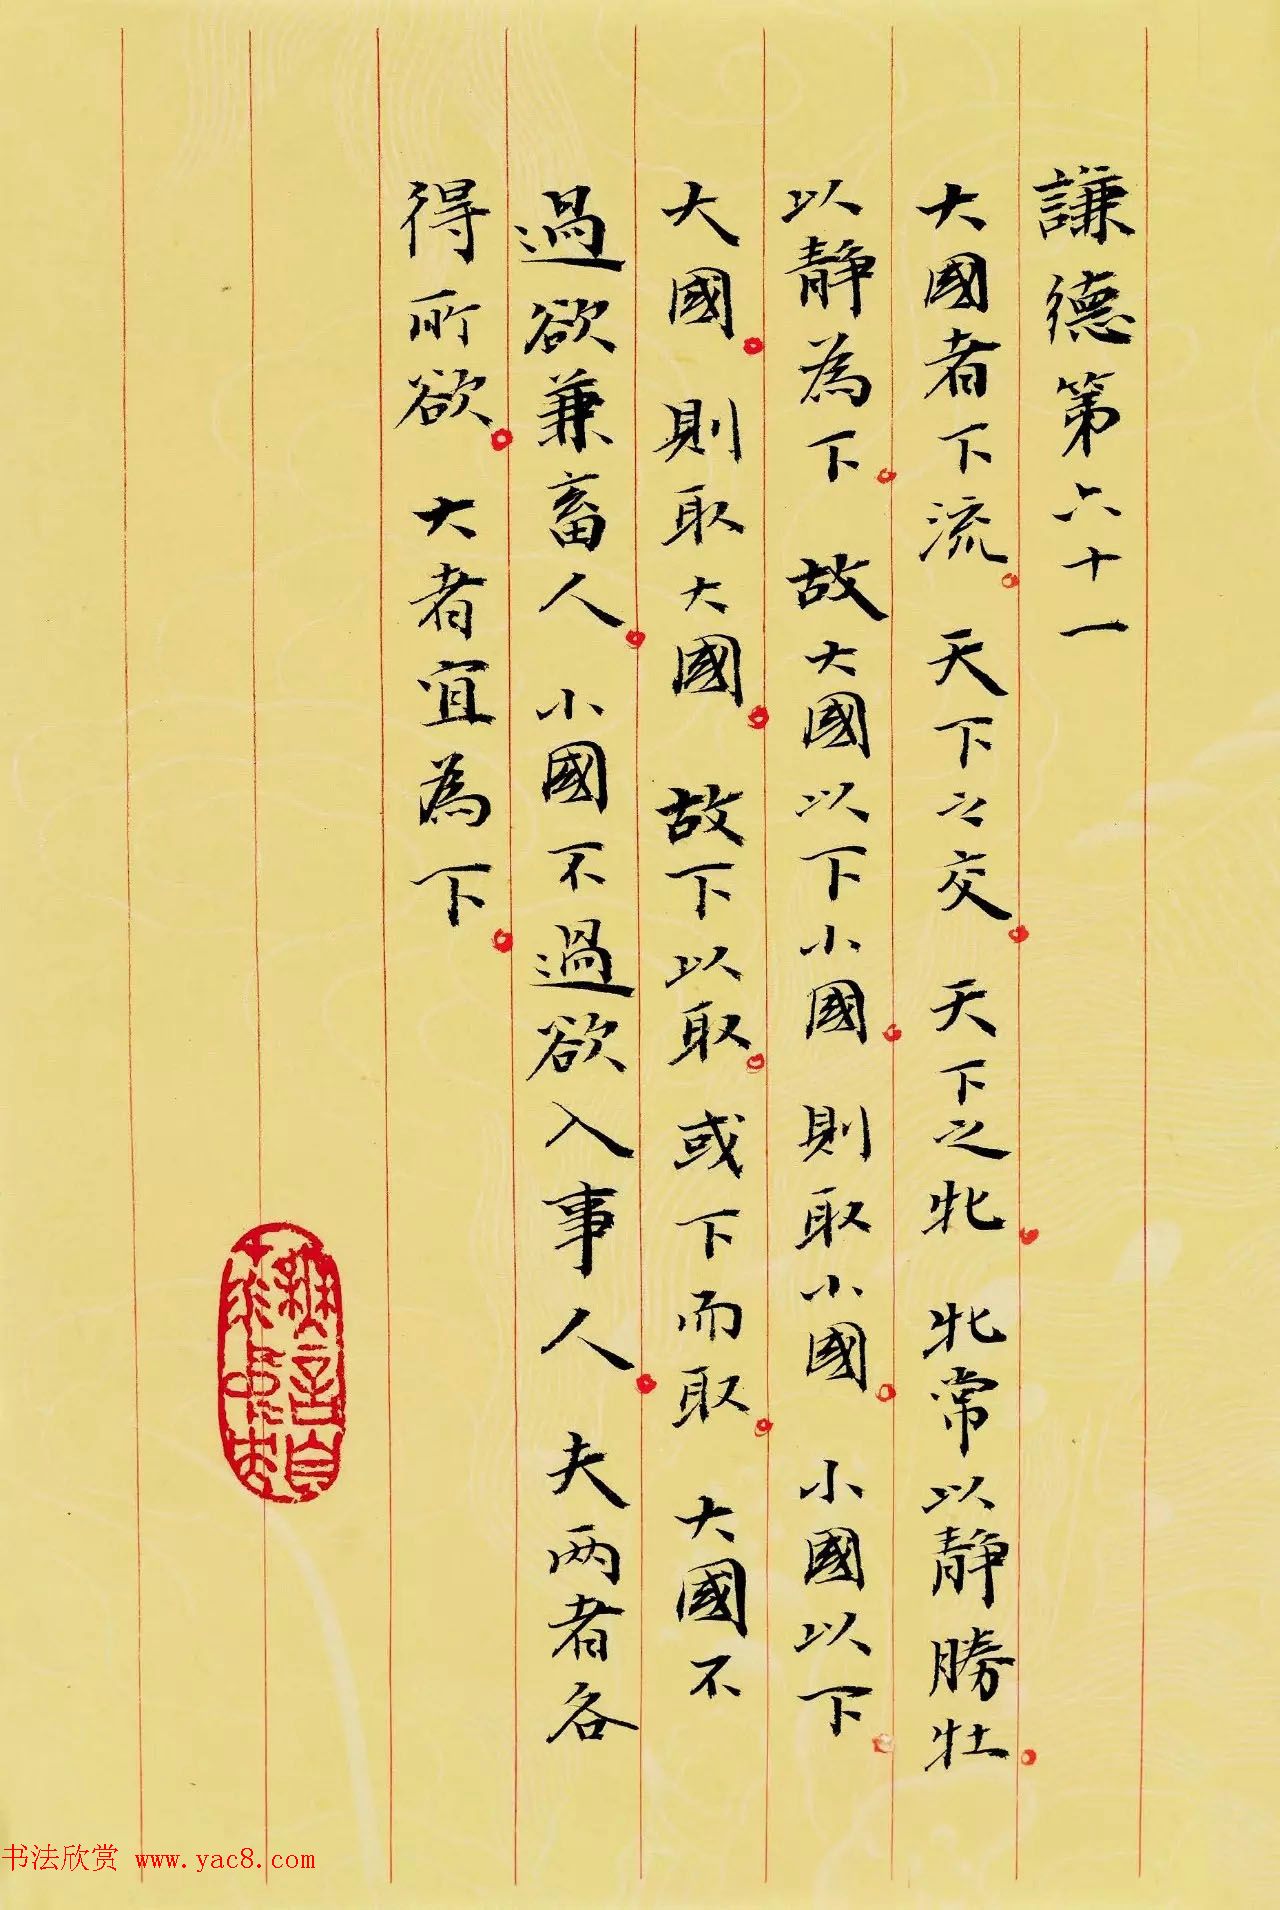 謙德第六十一
大國者下流。天下之交。天下之牝。牝常以静勝牡。
以静為下。故大國以下小國則取小國。小國以下
大國。則取大國。故下以取。或下而取。大國不
過欲兼畜人。小國不過欲入事人。夫两者各
得所欲。大者宜為下。
书法欣赏 www.yac8.com